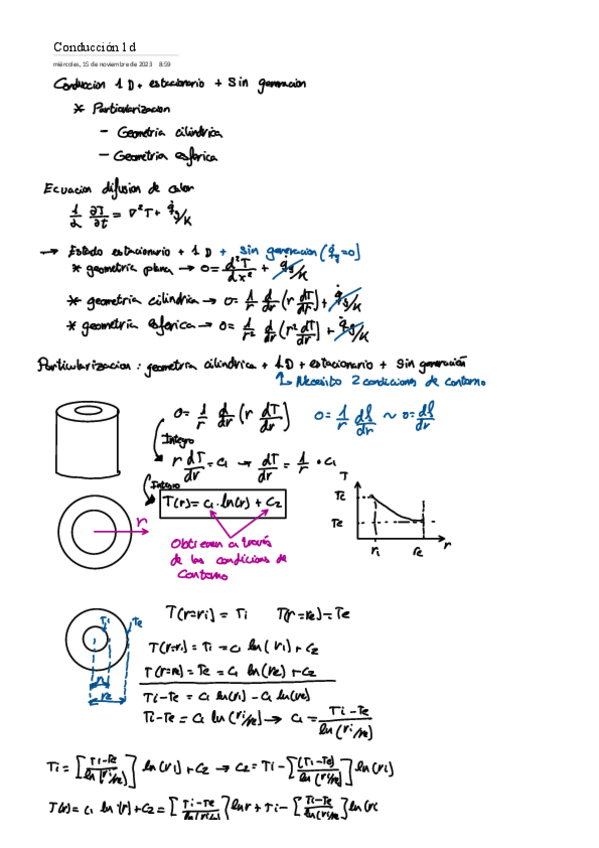 Conducción 1d
miércoles, 15 de noviembre de 2023 8:59
Conduccion 1 D + estacionario + Sin generacion
* Particularizacion
- Geometria cilindrica
- Geometria esferica
Ecuacion difusion de calor
1/α ∂T/∂t = ∇²T + q̇g/K
→ Estado estacionario + 1 D + sin generacion (q̇g=0)
* geometria plana → 0 = d²T/dx² + q̇g/K
* geometria cilindrica → 0 = 1/r d/dr (r dT/dr) + q̇g/K
* geometria esferica → 0 = 1/r² d/dr (r² dT/dr) + q̇g/K
Particularizacion : geometria cilindrica + 1D + estacionario + Sin generación
Necesito 2 condiciones de contorno
0 = 1/r d/dr (r dT/dr) 0 = 1/r df/dr ~ 0 = df/dr
Integro
r dT/dr = C1 → dT/dr = 1/r · C1
Integro
T(r) = C1 · ln(r) + C2
r
Obtienen a través
de las condiciones de
Contorno
T
Te
Te
ri re r
T(r=ri) = Ti T(r=re) = Te
Ti Te
ri
re
T(r=ri) = Ti = C1 ln(ri) + C2
T(r=re) = Te = C1 ln(re) + C2
Ti-Te = C1 ln(ri) - C1 ln(re)
Ti-Te = C1 ln(ri/re) → C1 = Ti-Te/ln(ri/re)
Ti = [Ti-Te/ln(ri/re)] ln(ri) + C2 → C2 = Ti - [(Ti-Te)/ln(ri/re)] ln(ri)
T(r) = C1 ln(r) + C2 = [Ti-Te/ln(ri/re)] ln r + Ti - [Ti-Te/ln(ri/re)] ln(ri